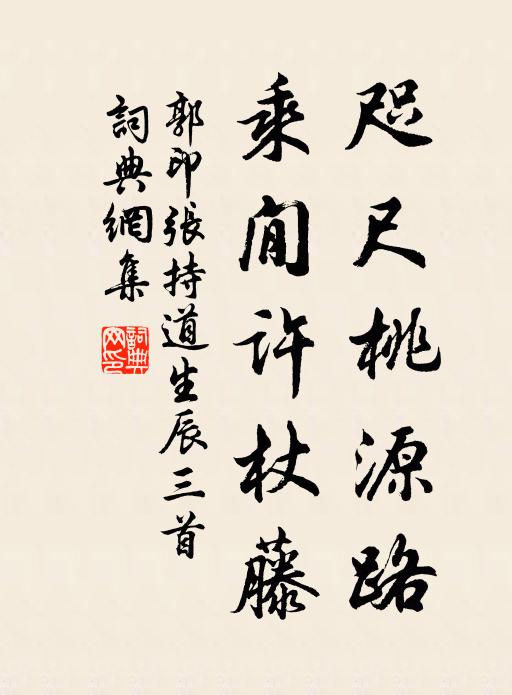 咫尺桃源路
乘閒許杖藤
郭印張持道生辰三首
詞典網集
詞典網印